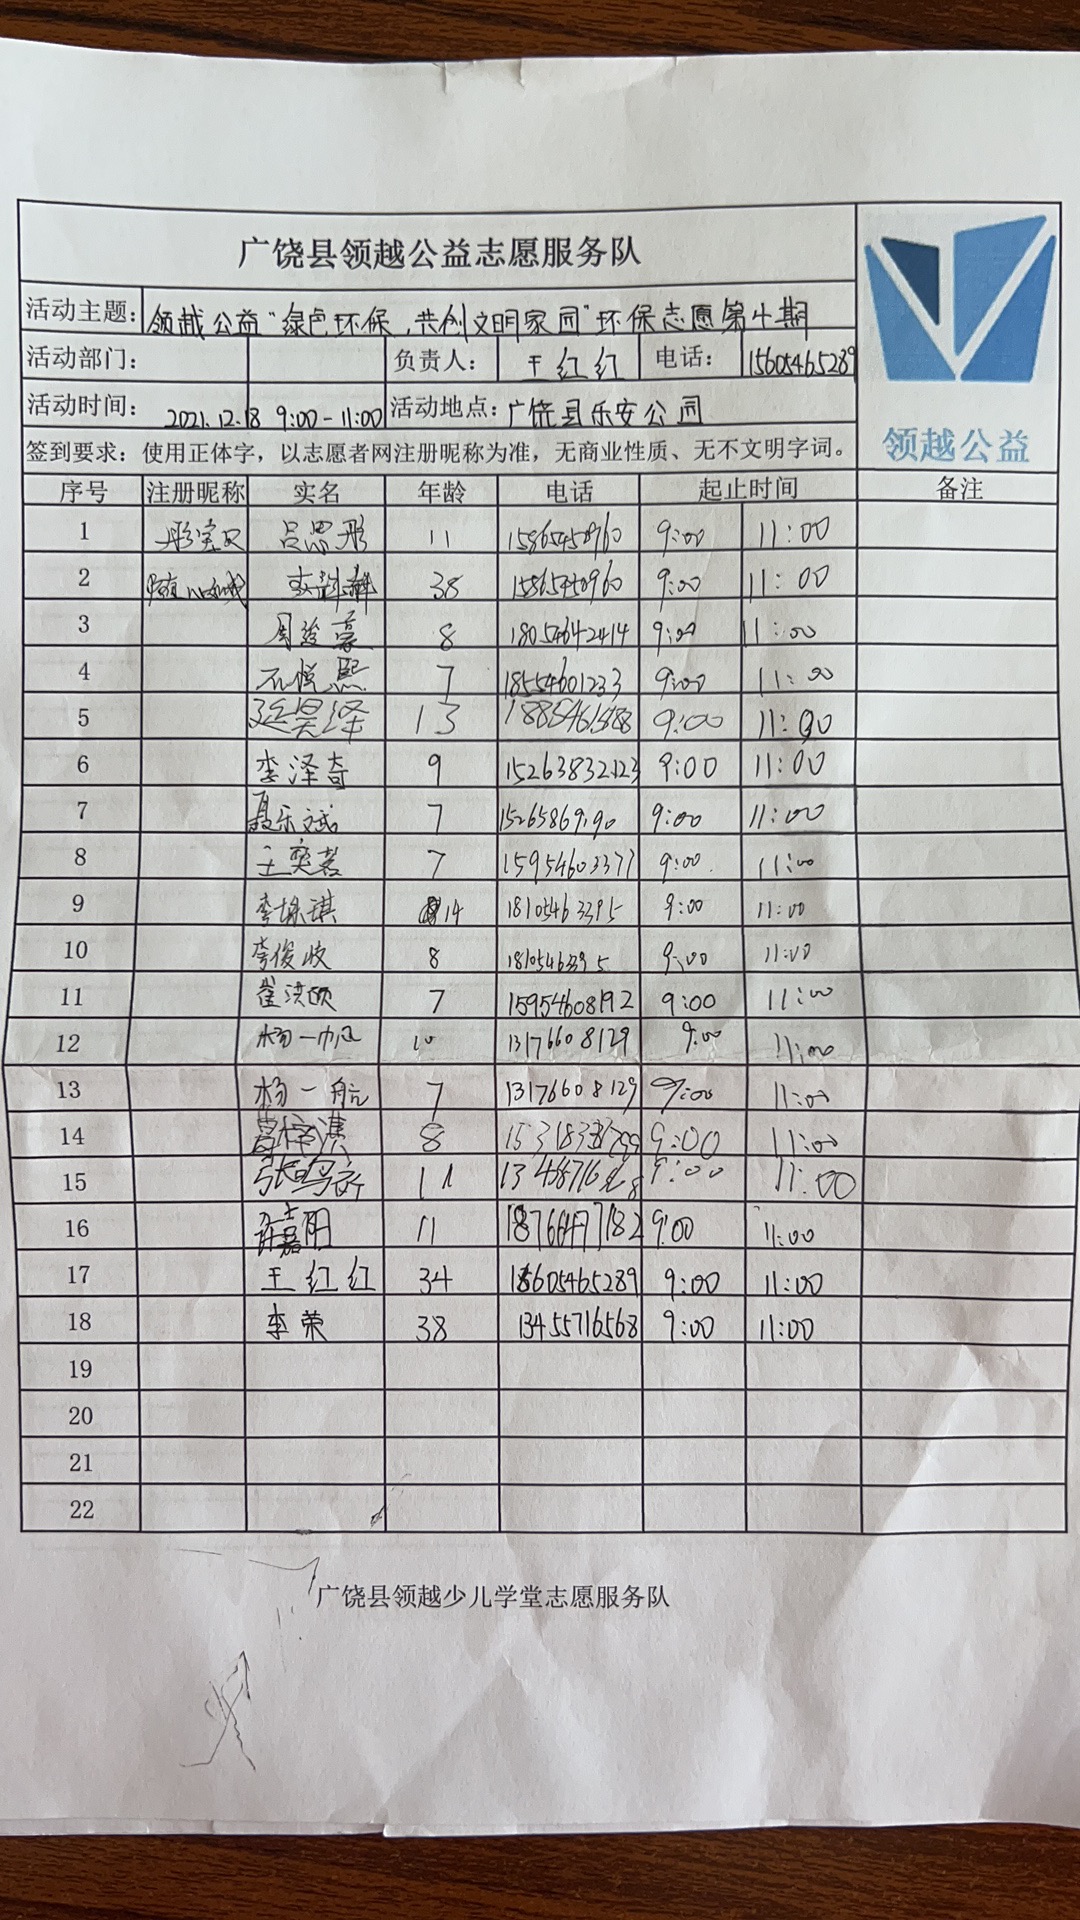 广饶县领越公益志愿服务队
活动主题： 领越公益“绿色环保，共创文明家园”环保志愿第十期
活动部门： 负责人： 王红红 电话： 15605465289
活动时间： 2021.12.18 9:00-11:00 活动地点：广饶县乐安公园
领越公益
签到要求：使用正体字，以志愿者网注册昵称为准，无商业性质、无不文明字词。
序号 注册昵称 实名 年龄 电话 起止时间 备注
1 彤宝贝 吕思彤 11 15865450960 9:00 11:00
2 38 15865450960 9:00 11:00
3 周竣豪 8 18054642414 9:00 11:00
4 石悦熙 7 18554601233 9:00 11:00
5 延昊泽 13 9:00 11:00
6 李泽奇 9 15263832123 9:00 11:00
7 聂乐斌 7 9:00 11:00
8 王奕茗 7 15954603377 9:00 11:00
9 14 18105463395 9:00 11:00
10 8 9:00 11:00
11 崔洪硕 7 15954608192 9:00 11:00
12 杨一帆 10 13176608129 9:00 11:00
13 杨一航 7 13176608129 9:00 11:00
14 8 9:00 11:00
15 11 9:00 11:00
16 许嘉阳 11 18766497182 9:00 11:00
17 王红红 34 15605465289 9:00 11:00
18 李荣 38 13455716568 9:00 11:00
19
20
21
22
广饶县领越少儿学堂志愿服务队